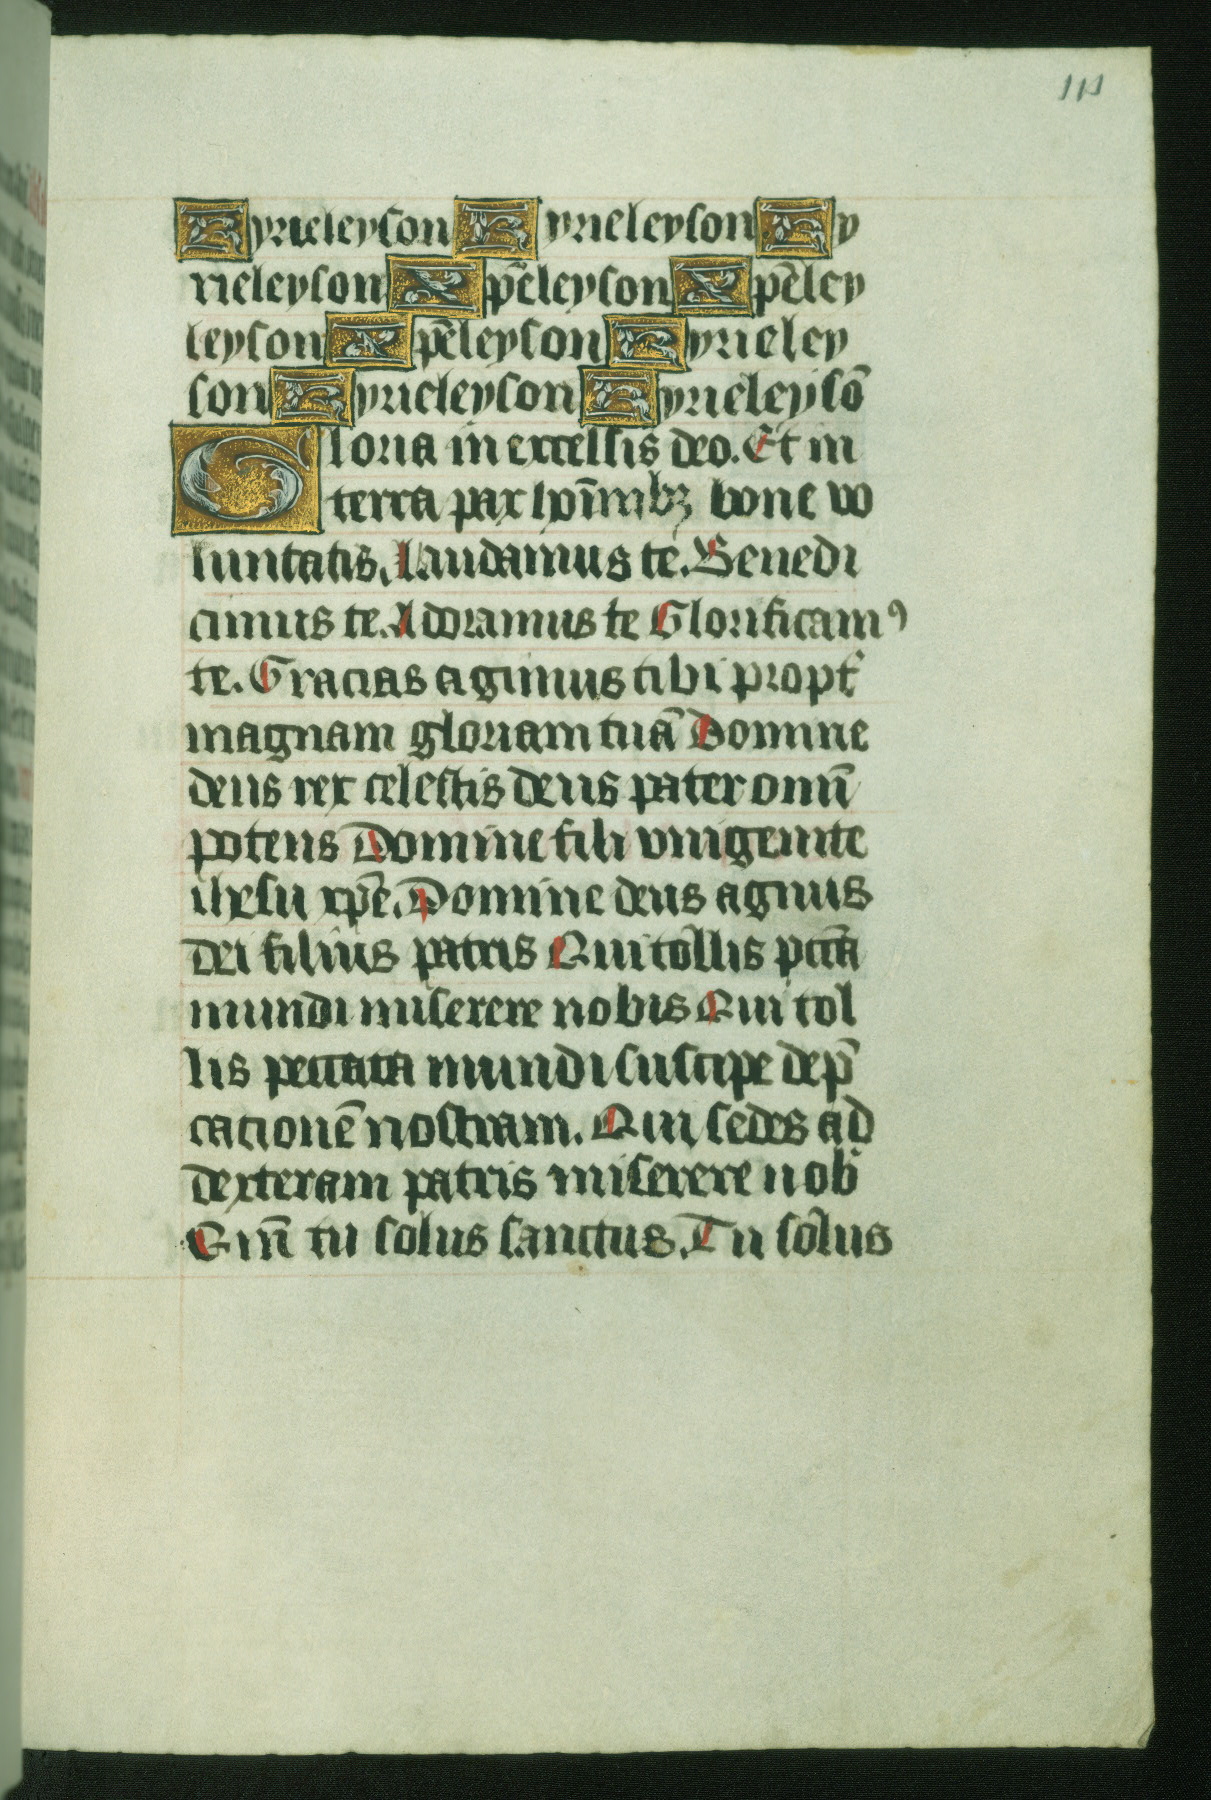 111
Kyrieleyson Kyrieleyson Ky
rieleyson Xp̄eleyson Xp̄eley
leyson Xp̄eleyson Kyrieley
son Kyrieleyson Kyrieleysō
Gloria in excelsis deo. Et in
terra pax hoīnibꝫ bone vo
luntatis. Laudamus te. Benedi
cimus te. Adoramus te Glorificamꝰ
te. Gracias agimus tibi propt̄
magnam gloriam tuā Domine
deus rex celestis deus pater omī
potens Domine fili vnigenite
ihesu xp̄e. Domine deus agnus
dei filius patris Qui tollis pctā
mundi miserere nobis Qui tol
lis peccata mundi suscipe dep̄
cationē nostram. Qui sedes ad
dexteram patris miserere nob̄
Qm̄ tu solus sanctus. Tu solus